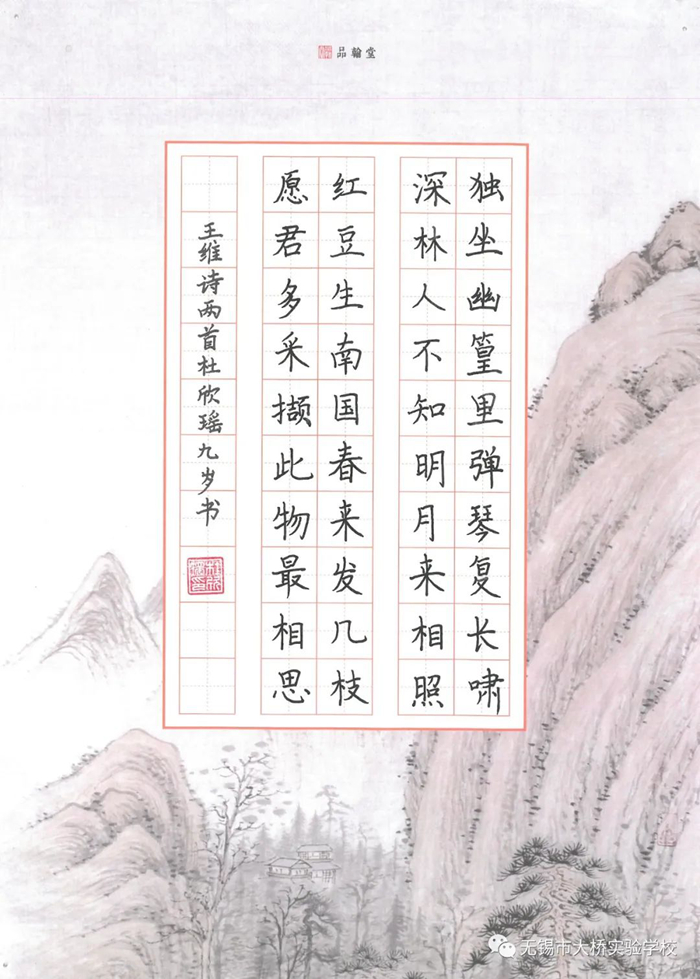 品翰堂
独坐幽篁里弹琴复长啸
深林人不知明月来相照
红豆生南国春来发几枝
愿君多采撷此物最相思
王维诗两首杜欣瑶九岁书
无锡市大桥实验学校